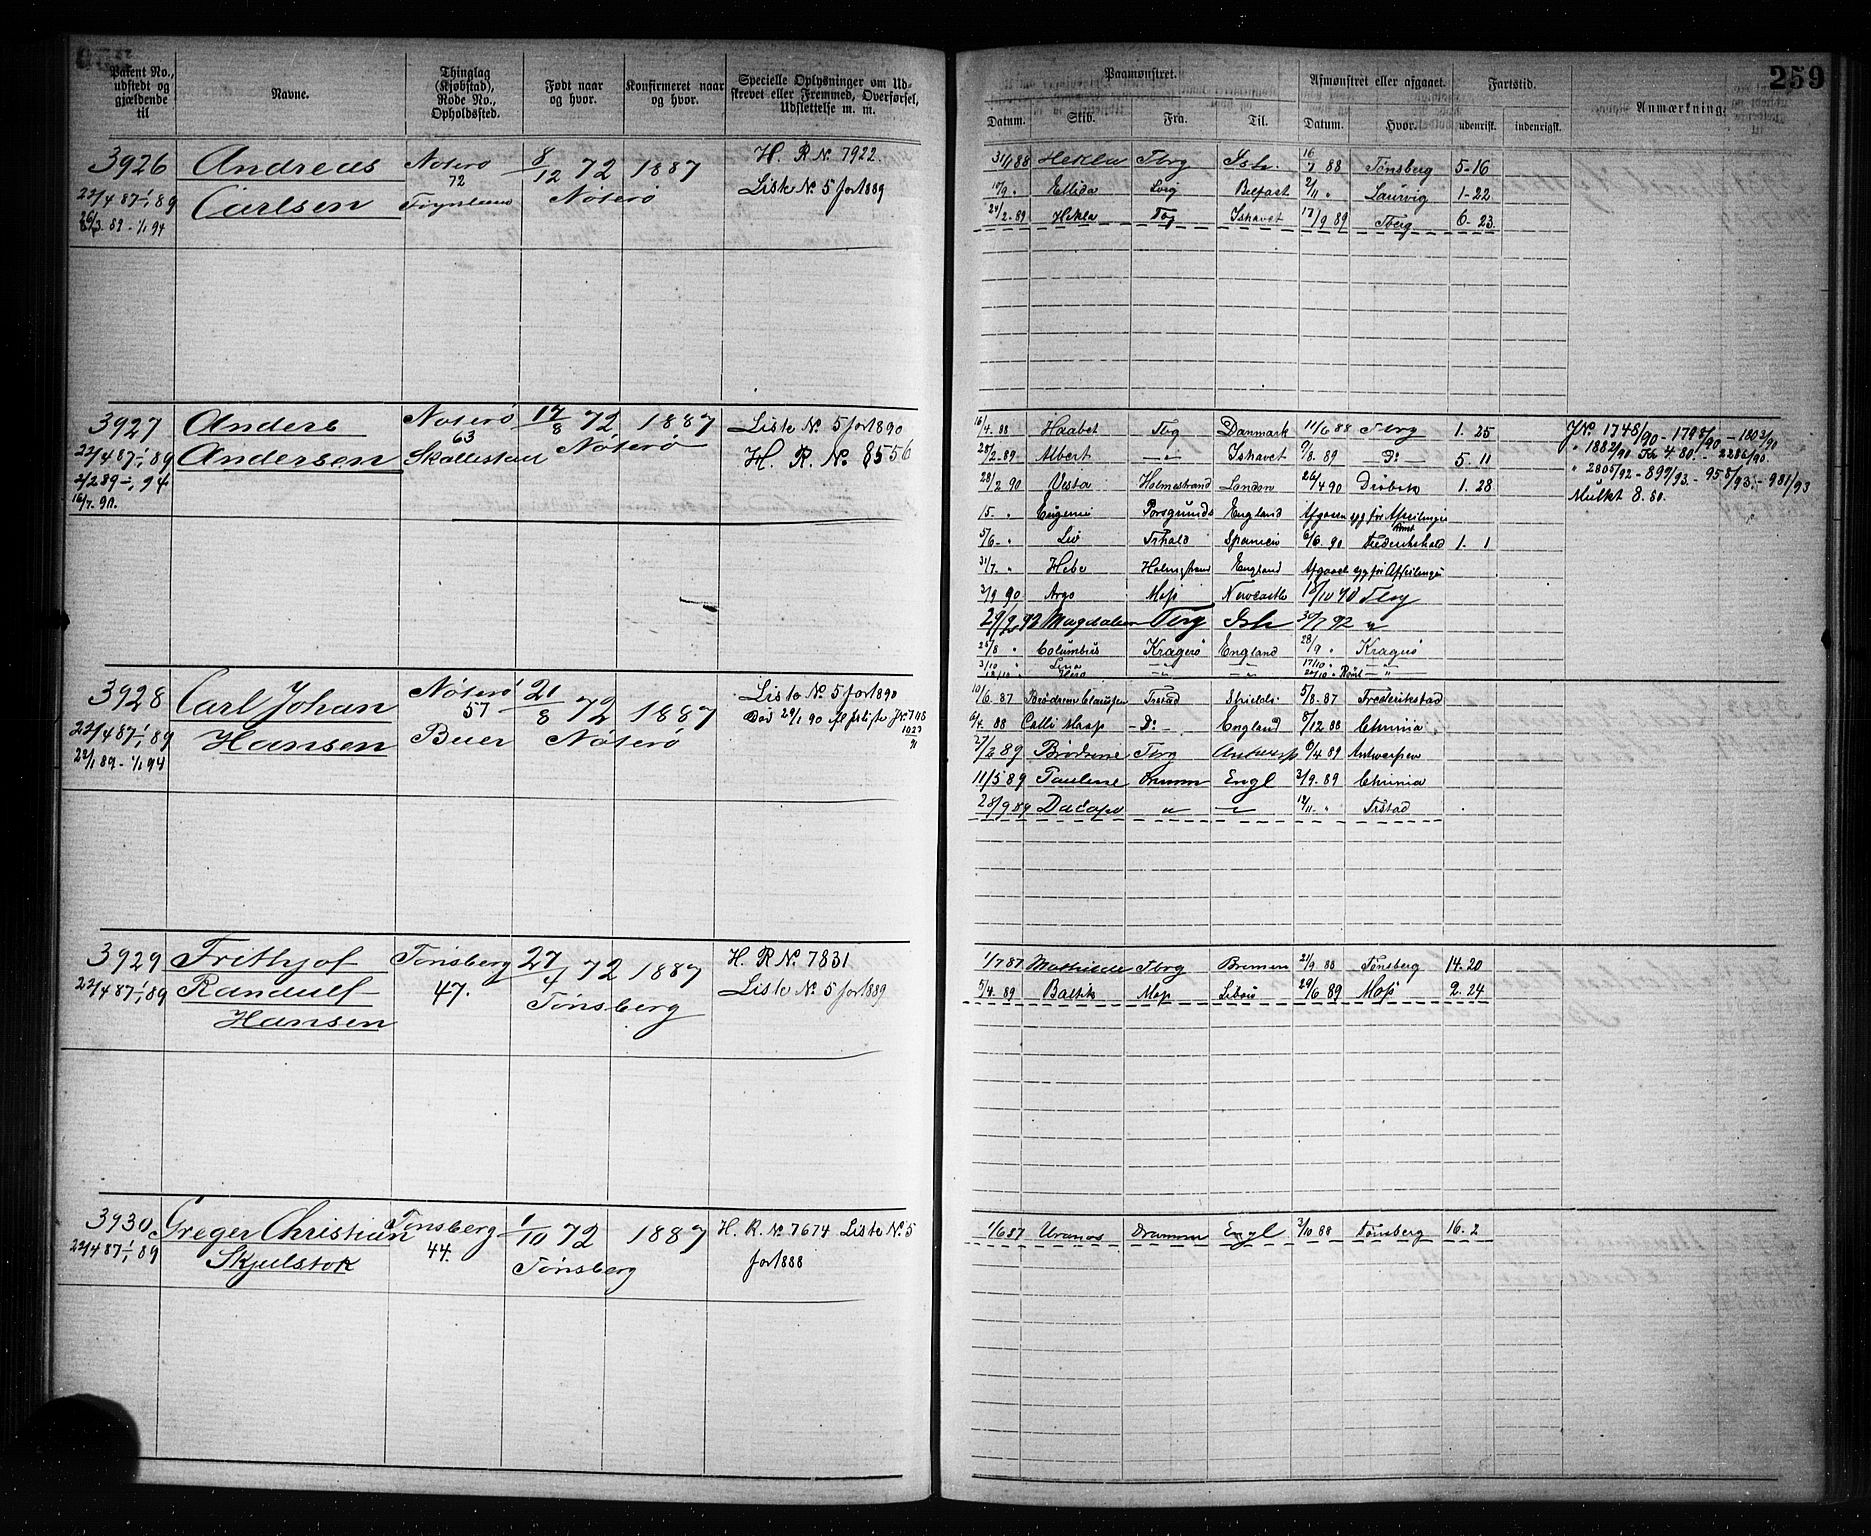 259
Patent No., udstedt og gjældende til
Navne.
Thinglag (Kjøbstad), Rode No., Opholdssted.
Født naar og hvor.
Konfirmeret naar og hvor.
Specielle Oplysninger om Udskrevet eller Fremmed, Overførsel, Udslettelse m. m.
Paamønstret.
Afmønstret eller afgaaet.
Fartstid.
Anmærkning.
Datum. Skib. Fra. Til. Datum. Hvor. udenrigs. indenrigst.
3926 Andreas Nøterø 8/12 72 1887 H. R. N. 7922.
72
22/4 87-1/1 89 Carlsen Nøterø Liste No. 5 for 1889
26/3 89 - 1/1 94
31/1 88 Hekla Tbrg Ish. 16/7 88 Tønsberg 5-16
17/9 " Ellida Belfast 2/11 " Laurvig 1-22
24/2-89 Hekla Tbg Ishavet 17/9 89 Tberg 6-23
3927 Anders Nøterø 17/8 72 1887 Liste No. 5 for 1890
63
22/4 87-1/1 89 Andersen Skallestad Nøterø H. R. No. 8556
2/2 89-1/1 94
16/7. 90.
16/4. 88 Haabet Tbg Danmark 11/6 88 Tbrg 1. 25
28/2. 89 Albert —"— Ishavet 9/8. 89 Do 5. 11
28/2 90 Vesta Holmestrand London 26/4 90 Drøbak 1. 28
15. " Eugenie Porsgrund England Afgaaen syg før Afseilingen
5/6- " Liv Frhald Spanien 6/6 90 Frederikshald 1. 1
31/7. " Hebe Holmestrand England Afgaaet syg før Afseilingen
3/9 90 Argo Moss Newcastle 18/10 90 Tbrg
29/2 92 Magdalene Tbrg Ish 30/7 92 "
25/8 " Columbus Kragerø England 28/9 " Kragerø
3/10 " Lina —"— —"— 17/10 " —"—
JNo. 1748/90 - 1795/90 - 1803/90
" 1882/90 Kr 4.80. - 2286/90
" 2805/92 - 899/93 - 958/93 - 981/93
Mulkt 8.80.
3928 Carl Johan Nøterø 21/8 72 1887 Liste No. 5 for 1890
57 Død 29/1 90
22/4 87-1/1 89 Hansen Buer Nøterø
22/1 89 - 1/1 94
10/6. 87 Brødrene Clausen Frstad Shields 5/8-87 Frederikstad
6/4. 88 Do England 5/12 88 Chrinia
27/2 89 Brødrene Tbrg Antwerp 6/4 89 Antwerpen
11/5 89 Pauline Dramm Engl 3/9. 89 Chrinia
28/9 89 Dacapo " — 12/11. " Frstad
3929 Frithjof Tønsberg 27/4 72 1887 H. R. No. 7831
22/4 87-1/1 89 Randulf 47. Tønsberg Liste No. 5 for 1889
Hansen
1/7 87 Mathilde Tbrg Bremen 21/9 88 Tønsberg 14. 20
5/4. 89 Baltik Moss Libau 29/6 89 Moss 2. 24
3930 Greger Christian Tønsberg 1/10 72 1887 H. R. No. 7674 Liste No. 5
22/4 87-1/1 89 Skjelstok 44. Tønsberg for 1888
1/6 87 Uranos Drammen Engl 3/10 88 Tønsberg 16. 2